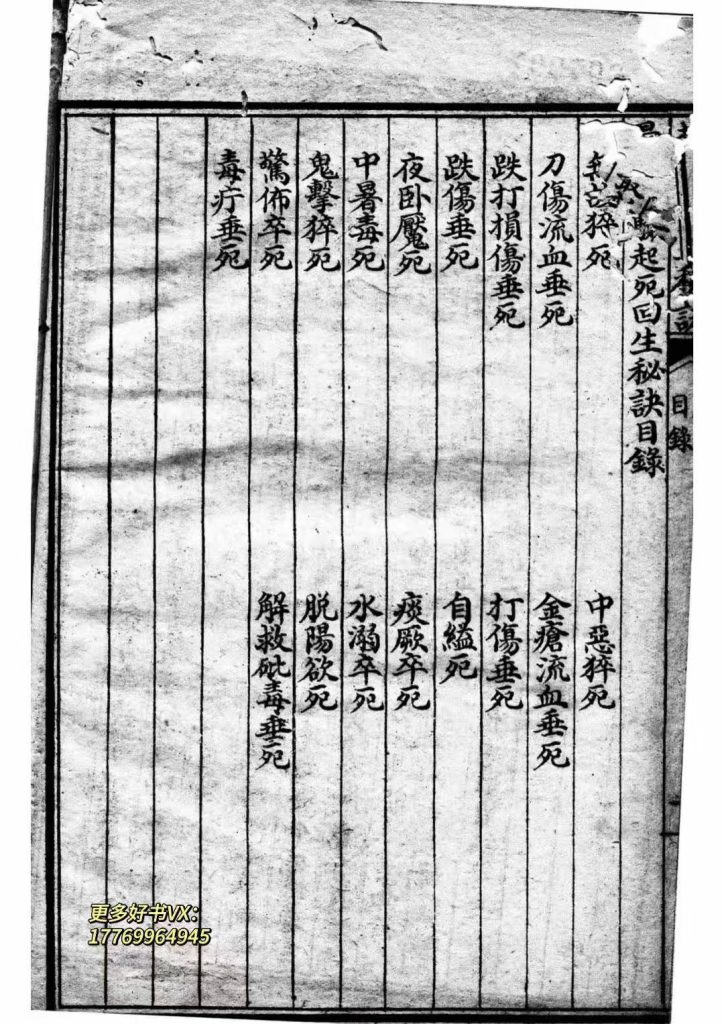 起死回生秘訣目錄
猝死
中惡猝死
刀傷流血垂死
金瘡流血垂死
跌打損傷垂死
打傷垂死
跌傷垂死
自縊死
夜卧魘死
痰厥卒死
中暑毒死
水溺卒死
鬼擊猝死
脫陽欲死
驚佈卒死
解救砒毒垂死
毒疔垂死
目錄
更多好书VX:
17769964945